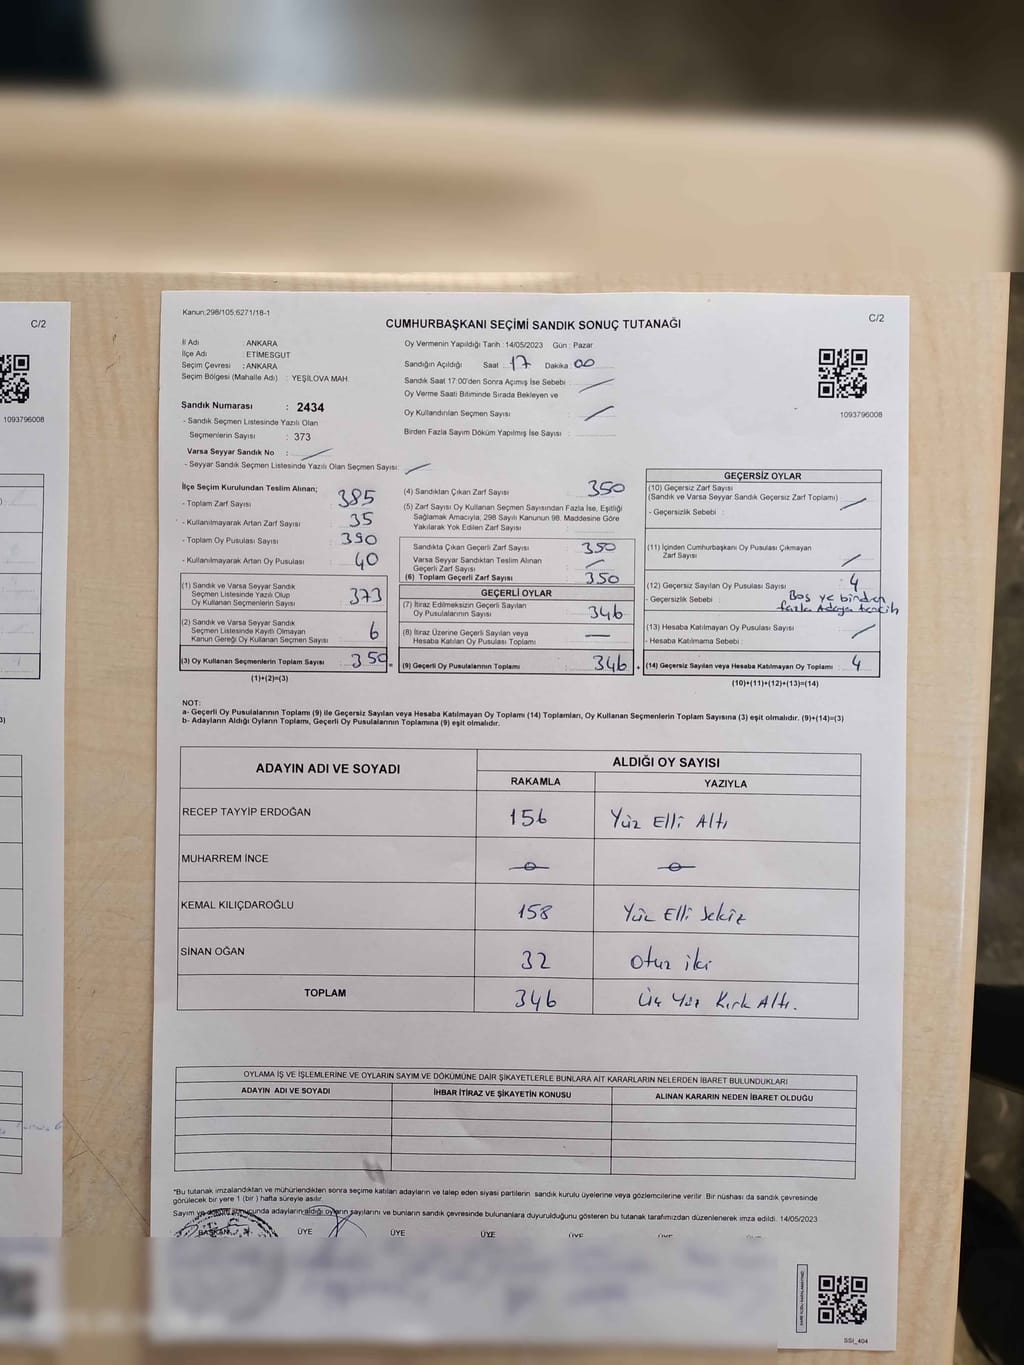 C/2
1093796008
Kanun;298/105;6271/18-1
C/2
CUMHURBAŞKANI SEÇİMİ SANDIK SONUÇ TUTANAĞI
İl Adı : ANKARA
İlçe Adı : ETİMESGUT
Seçim Çevresi : ANKARA
Seçim Bölgesi (Mahalle Adı) : YEŞİLOVA MAH.
Sandık Numarası : 2434
- Sandık Seçmen Listesinde Yazılı Olan
Seçmenlerin Sayısı : 373
Varsa Seyyar Sandık No :
- Seyyar Sandık Seçmen Listesinde Yazılı Olan Seçmen Sayısı:
Oy Vermenin Yapıldığı Tarih : 14/05/2023 Gün : Pazar
Sandığın Açıldığı Saat : 17 Dakika : 00
Sandık Saat 17:00'den Sonra Açımış İse Sebebi :
Oy Verme Saati Bitiminde Sırada Bekleyen ve
Oy Kullandırılan Seçmen Sayısı :
Birden Fazla Sayım Döküm Yapılmış İse Sayısı :
1093796008
İlçe Seçim Kurulundan Teslim Alınan;
- Toplam Zarf Sayısı : 385
- Kullanılmayarak Artan Zarf Sayısı : 35
- Toplam Oy Pusulası Sayısı : 390
- Kullanılmayarak Artan Oy Pusulası : 40
(1) Sandık ve Varsa Seyyar Sandık
Seçmen Listesinde Yazılı Olup
Oy Kullanan Seçmenlerin Sayısı : 373
(2) Sandık ve Varsa Seyyar Sandık
Seçmen Listesinde Kayıtlı Olmayan
Kanun Gereği Oy Kullanan Seçmen Sayısı : 6
(3) Oy Kullanan Seçmenlerin Toplam Sayısı : 350
(1)+(2)=(3)
(4) Sandıktan Çıkan Zarf Sayısı : 350
(5) Zarf Sayısı Oy Kullanan Seçmen Sayısından Fazla İse, Eşitliği
Sağlamak Amacıyla; 298 Sayılı Kanunun 98. Maddesine Göre
Yakılarak Yok Edilen Zarf Sayısı :
Sandıkta Çıkan Geçerli Zarf Sayısı : 350
Varsa Seyyar Sandıktan Teslim Alınan
Geçerli Zarf Sayısı :
(6) Toplam Geçerli Zarf Sayısı : 350
GEÇERLİ OYLAR
(7) İtiraz Edilmeksizin Geçerli Sayılan
Oy Pusulalarının Sayısı : 346
(8) İtiraz Üzerine Geçerli Sayılan veya
Hesaba Katılan Oy Pusulası Toplamı : —
(9) Geçerli Oy Pusulalarının Toplamı : 346
GEÇERSİZ OYLAR
(10) Geçersiz Zarf Sayısı
(Sandık ve Varsa Seyyar Sandık Geçersiz Zarf Toplamı) :
- Geçersizlik Sebebi :
(11) İçinden Cumhurbaşkanı Oy Pusulası Çıkmayan
Zarf Sayısı :
(12) Geçersiz Sayılan Oy Pusulası Sayısı : 4
- Geçersizlik Sebebi : Boş ve birden
fazla Adaya tercih
(13) Hesaba Katılmayan Oy Pusulası Sayısı :
- Hesaba Katılmama Sebebi :
(14) Geçersiz Sayılan veya Hesaba Katılmayan Oy Toplamı : 4
(10)+(11)+(12)+(13)=(14)
NOT:
a- Geçerli Oy Pusulalarının Toplamı (9) ile Geçersiz Sayılan veya Hesaba Katılmayan Oy Toplamı (14) Toplamları, Oy Kullanan Seçmenlerin Toplam Sayısına (3) eşit olmalıdır. (9)+(14)=(3)
b- Adayların Aldığı Oyların Toplamı, Geçerli Oy Pusulalarının Toplamına (9) eşit olmalıdır.
ADAYIN ADI VE SOYADI ALDIĞI OY SAYISI
RAKAMLA YAZIYLA
RECEP TAYYİP ERDOĞAN 156 Yüz Elli Altı
MUHARREM İNCE
KEMAL KILIÇDAROĞLU 158 Yüz Elli Sekiz
SİNAN OĞAN 32 Otuz iki
TOPLAM 346 Üç Yüz Kırk Altı.
OYLAMA İŞ VE İŞLEMLERİNE VE OYLARIN SAYIM VE DÖKÜMÜNE DAİR ŞİKAYETLERLE BUNLARA AİT KARARLARIN NELERDEN İBARET BULUNDUKLARI
ADAYIN ADI VE SOYADI İHBAR İTİRAZ VE ŞİKAYETİN KONUSU ALINAN KARARIN NEDEN İBARET OLDUĞU
*Bu tutanak imzalandıktan ve mühürlendikten sonra seçime katılan adayların ve talep eden siyasi partilerin sandık kurulu üyelerine veya gözlemcilerine verilir. Bir nüshası da sandık çevresinde
görülecek bir yere 1 (bir) hafta süreyle asılır.
Sayım ve döküm sonucunda adayların aldığı oyların sayılarını ve bunların sandık çevresinde bulunanlara duyurulduğunu gösteren bu tutanak tarafımızdan düzenlenerek imza edildi. 14/05/2023
BAŞKAN ÜYE ÜYE ÜYE ÜYE ÜYE
SSI_404